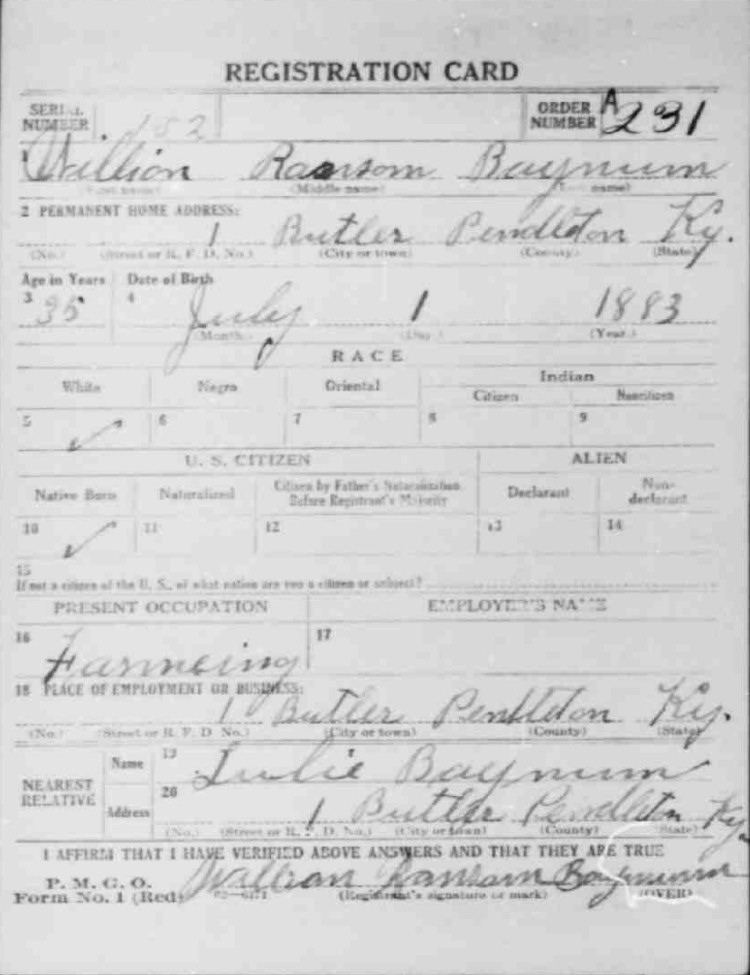 REGISTRATION CARD
SERIAL NUMBER 152 ORDER NUMBER A231
1 Willion Ransom Baynum
(Middle name) name)
2 PERMANENT HOME ADDRESS:
1 Butler Pendleton Ky.
(No.) (Street or R. F. D. No.) (City or town) (County) (State)
Age in Years Date of Birth
3 35 4 July 1 1883
(Month) (Day) (Year)
RACE
White Negro Oriental Indian
Citizen Noncitizen
5 ✓ 6 7 8 9
U. S. CITIZEN ALIEN
Native Born Naturalized Citizen by Father's Naturalization Before Registrant's Majority Declarant Non-declarant
10 ✓ 11 12 13 14
15
If not a citizen of the U. S., of what nation are you a citizen or subject?
PRESENT OCCUPATION EMPLOYER'S NAME
16 Farmeing 17
18 PLACE OF EMPLOYMENT OR BUSINESS:
1 Butler Pendleton Ky.
(No.) (Street or R. F. D. No.) (City or town) (County) (State)
NEAREST RELATIVE Name 19 Julie Baynum
Address 20 1 Butler Pendleton Ky
(No.) (Street or R. F. D. No.) (City or town) (County) (State)
I AFFIRM THAT I HAVE VERIFIED ABOVE ANSWERS AND THAT THEY ARE TRUE
P. M. G. O.
Form No. 1 (Red) Willian Ransom Baynum
(Registrant's signature or mark) (OVER)